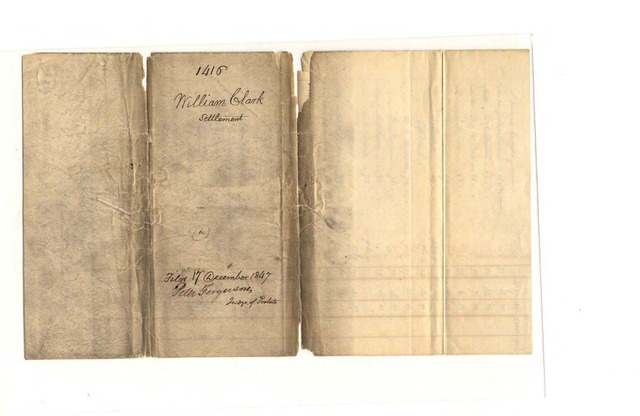 1416
William Clark
Settlement
Filed 17 December 1847
Peter Fergerson,
Judge of Probate